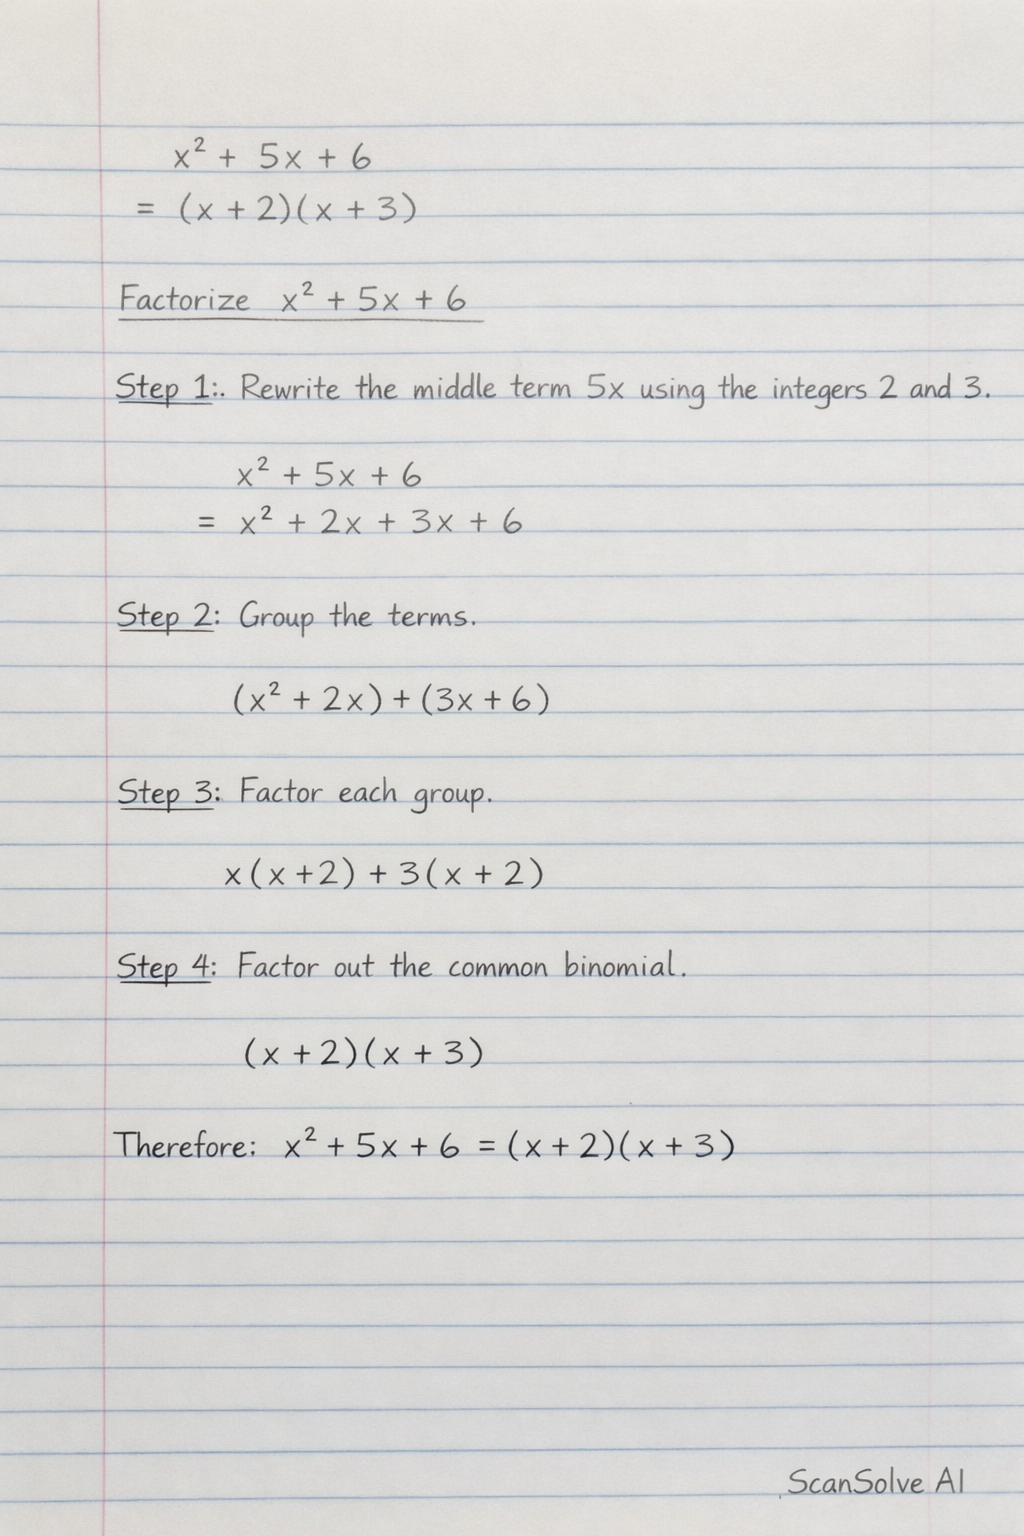 x² + 5x + 6
= (x + 2)(x + 3)
Factorize x² + 5x + 6
Step 1:. Rewrite the middle term 5x using the integers 2 and 3.
x² + 5x + 6
= x² + 2x + 3x + 6
Step 2: Group the terms.
(x² + 2x) + (3x + 6)
Step 3: Factor each group.
x(x+2) + 3(x + 2)
Step 4: Factor out the common binomial.
(x + 2)(x + 3)
Therefore: x² + 5x + 6 = (x + 2)(x + 3)
ScanSolve AI